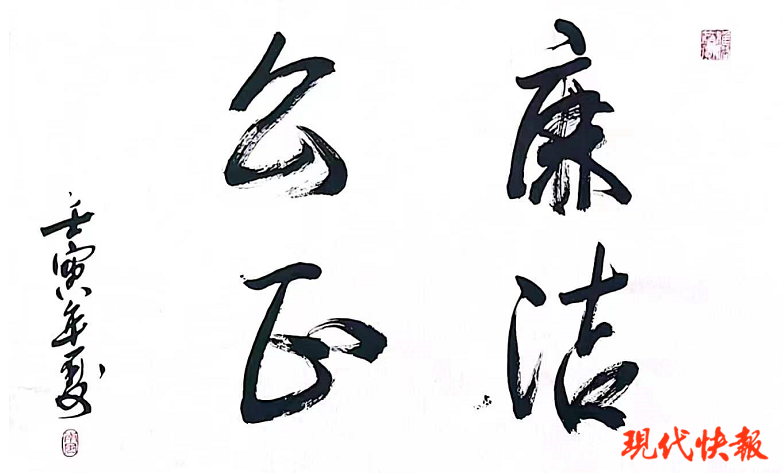 廉洁
公正
壬寅年夏
現代快報